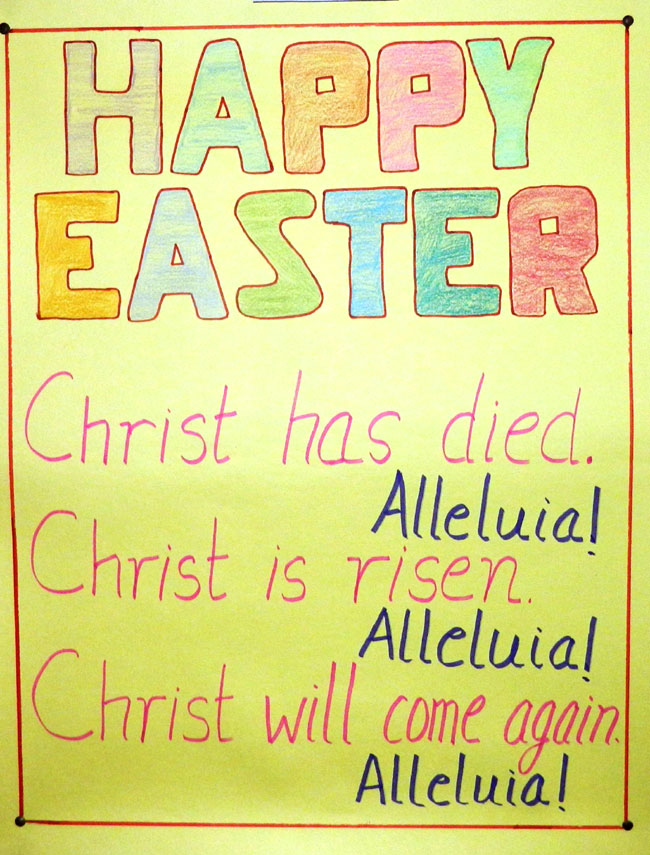 HAPPY
EASTER
Christ has died.
Alleluia!
Christ is risen.
Alleluia!
Christ will come again.
Alleluia!